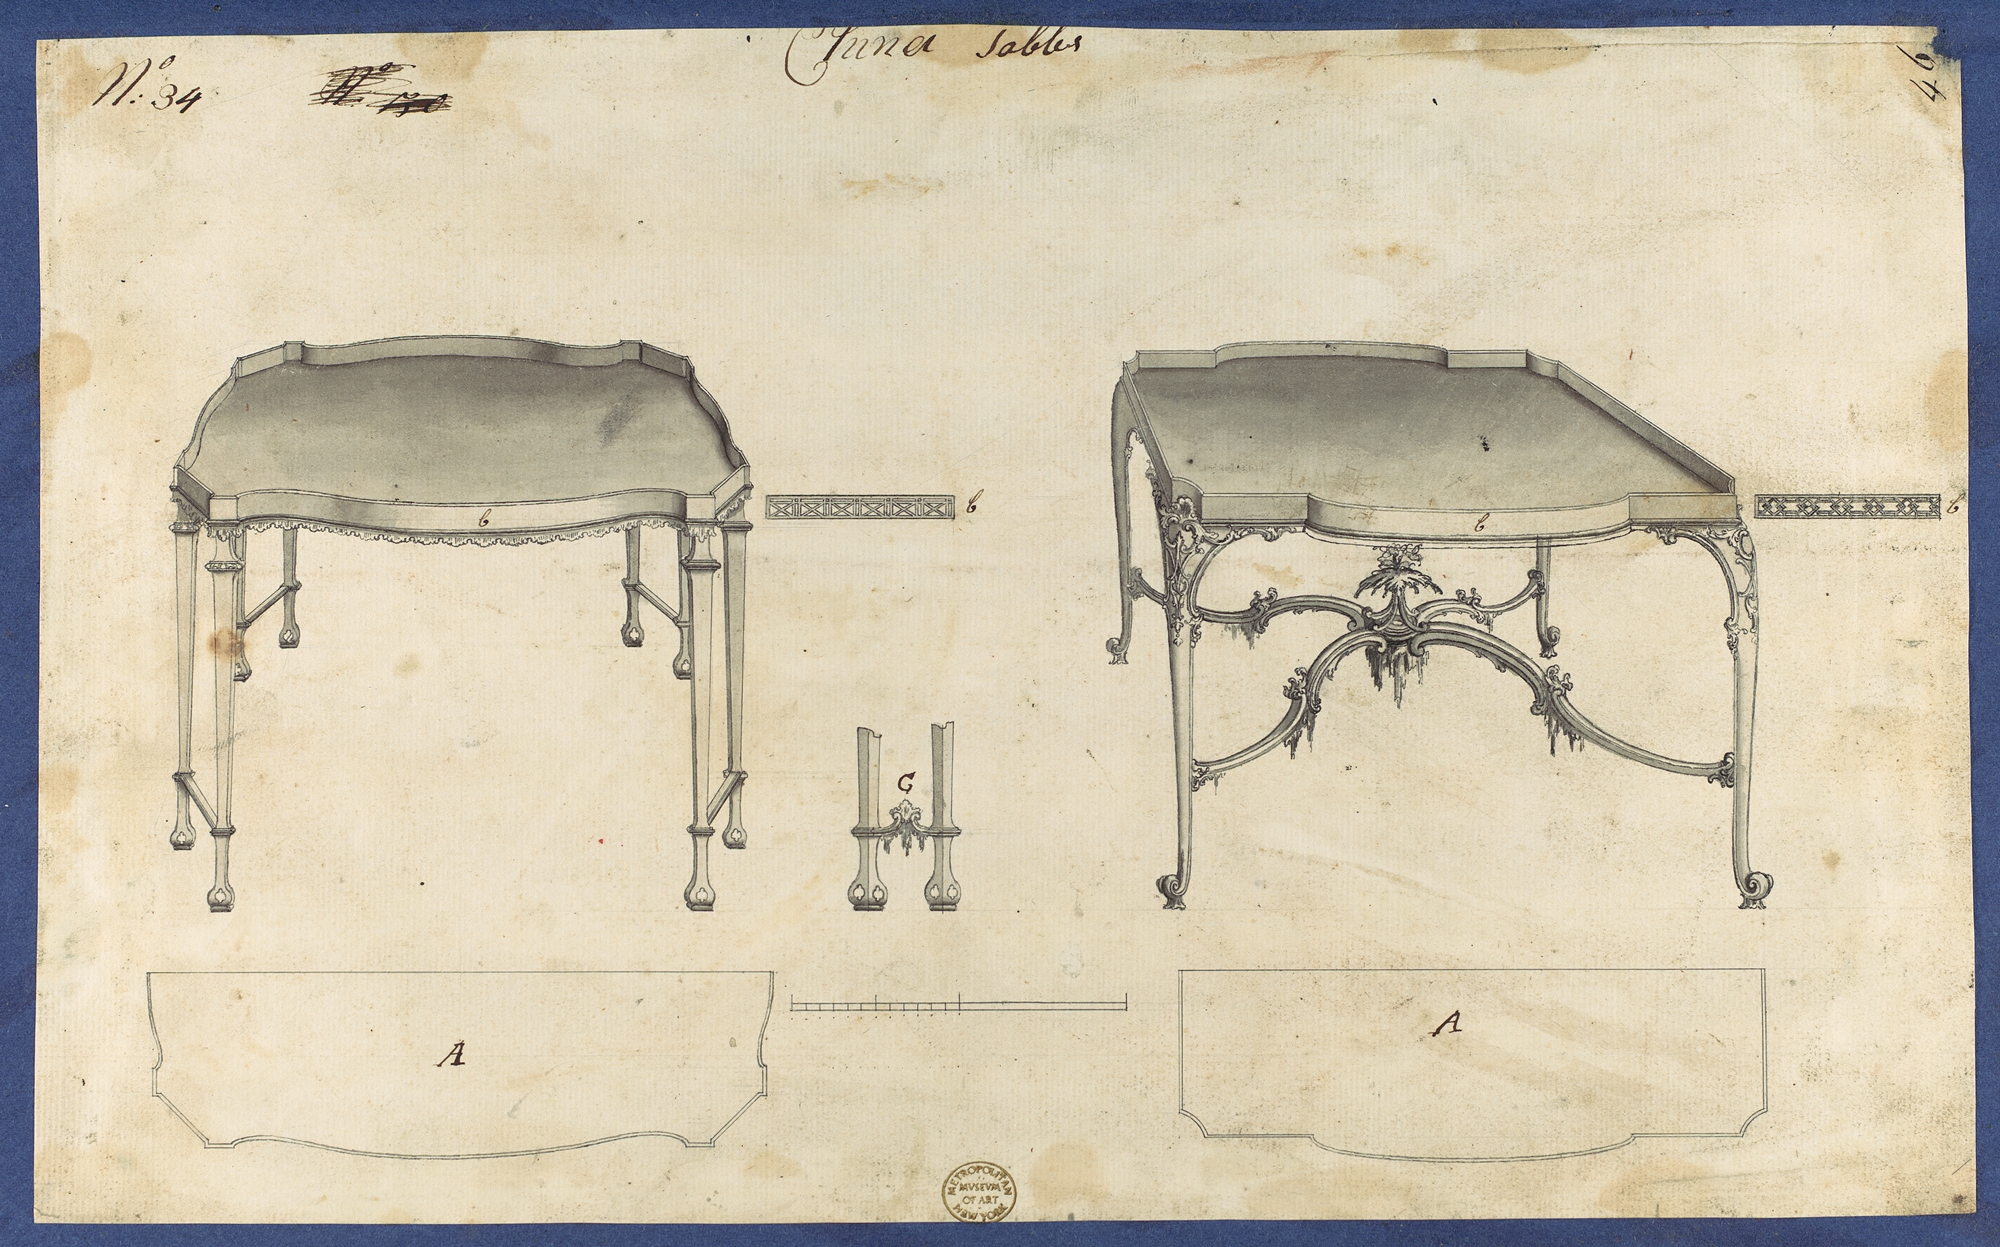 China Tables
N.o 34
No 30
46
b
b
b
b
G
A
A
METROPOLITAN
MVSEVM
OF ART
NEW YORK